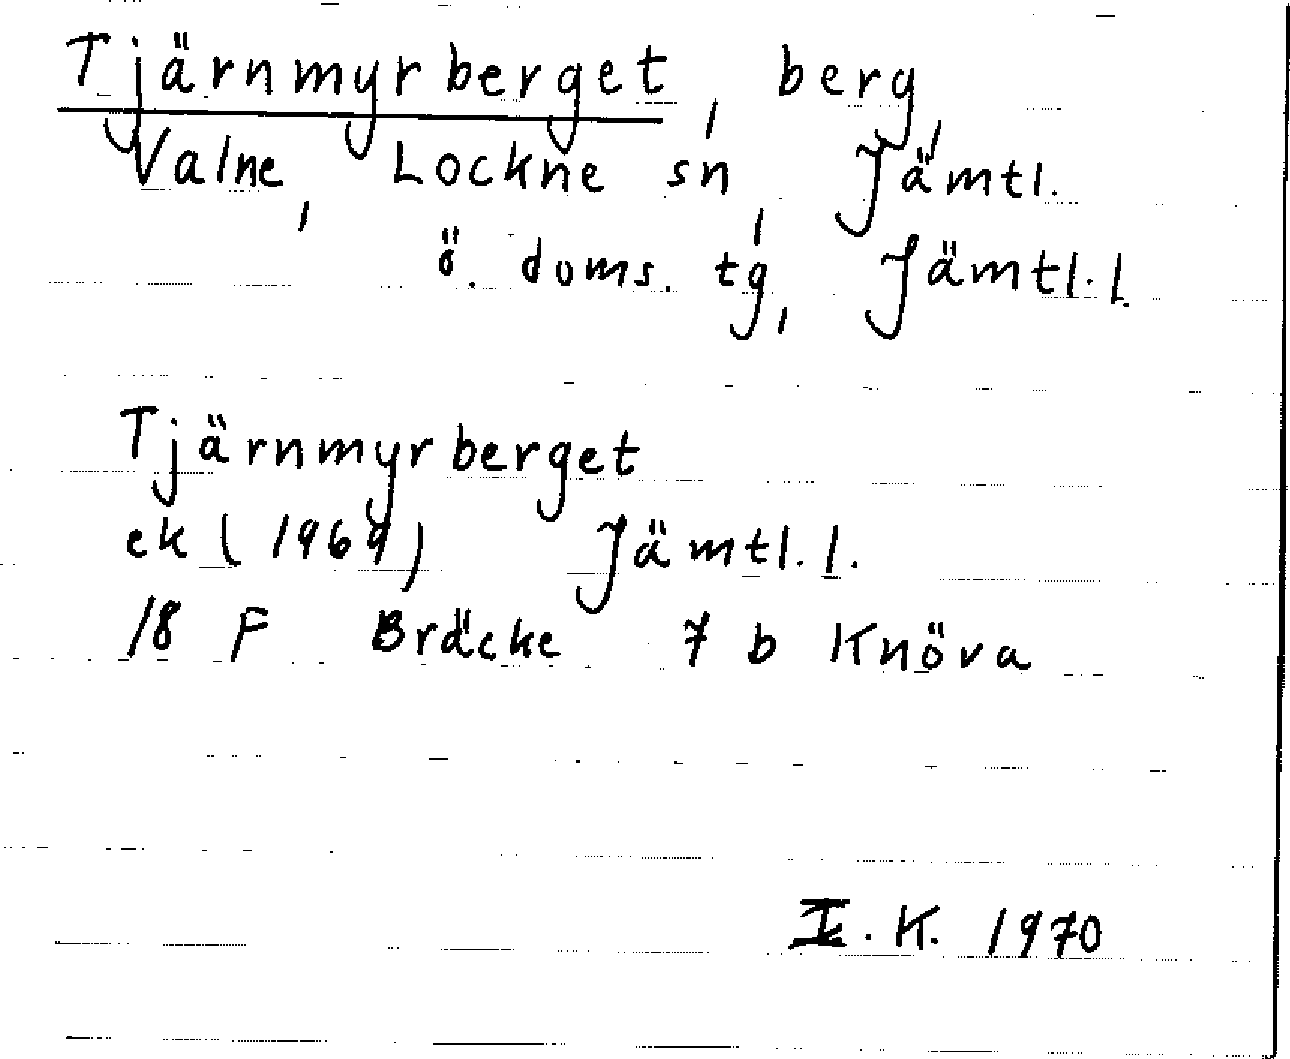 Tjärnmyrberget, berg,
Valne, Lockne sn, Jämtl.
ö. doms. tg, Jämtl. l.
Tjärnmyrberget
ek (1969) Jämtl. l.
18 F Bräcke 7 b Knöva
I. K. 1970